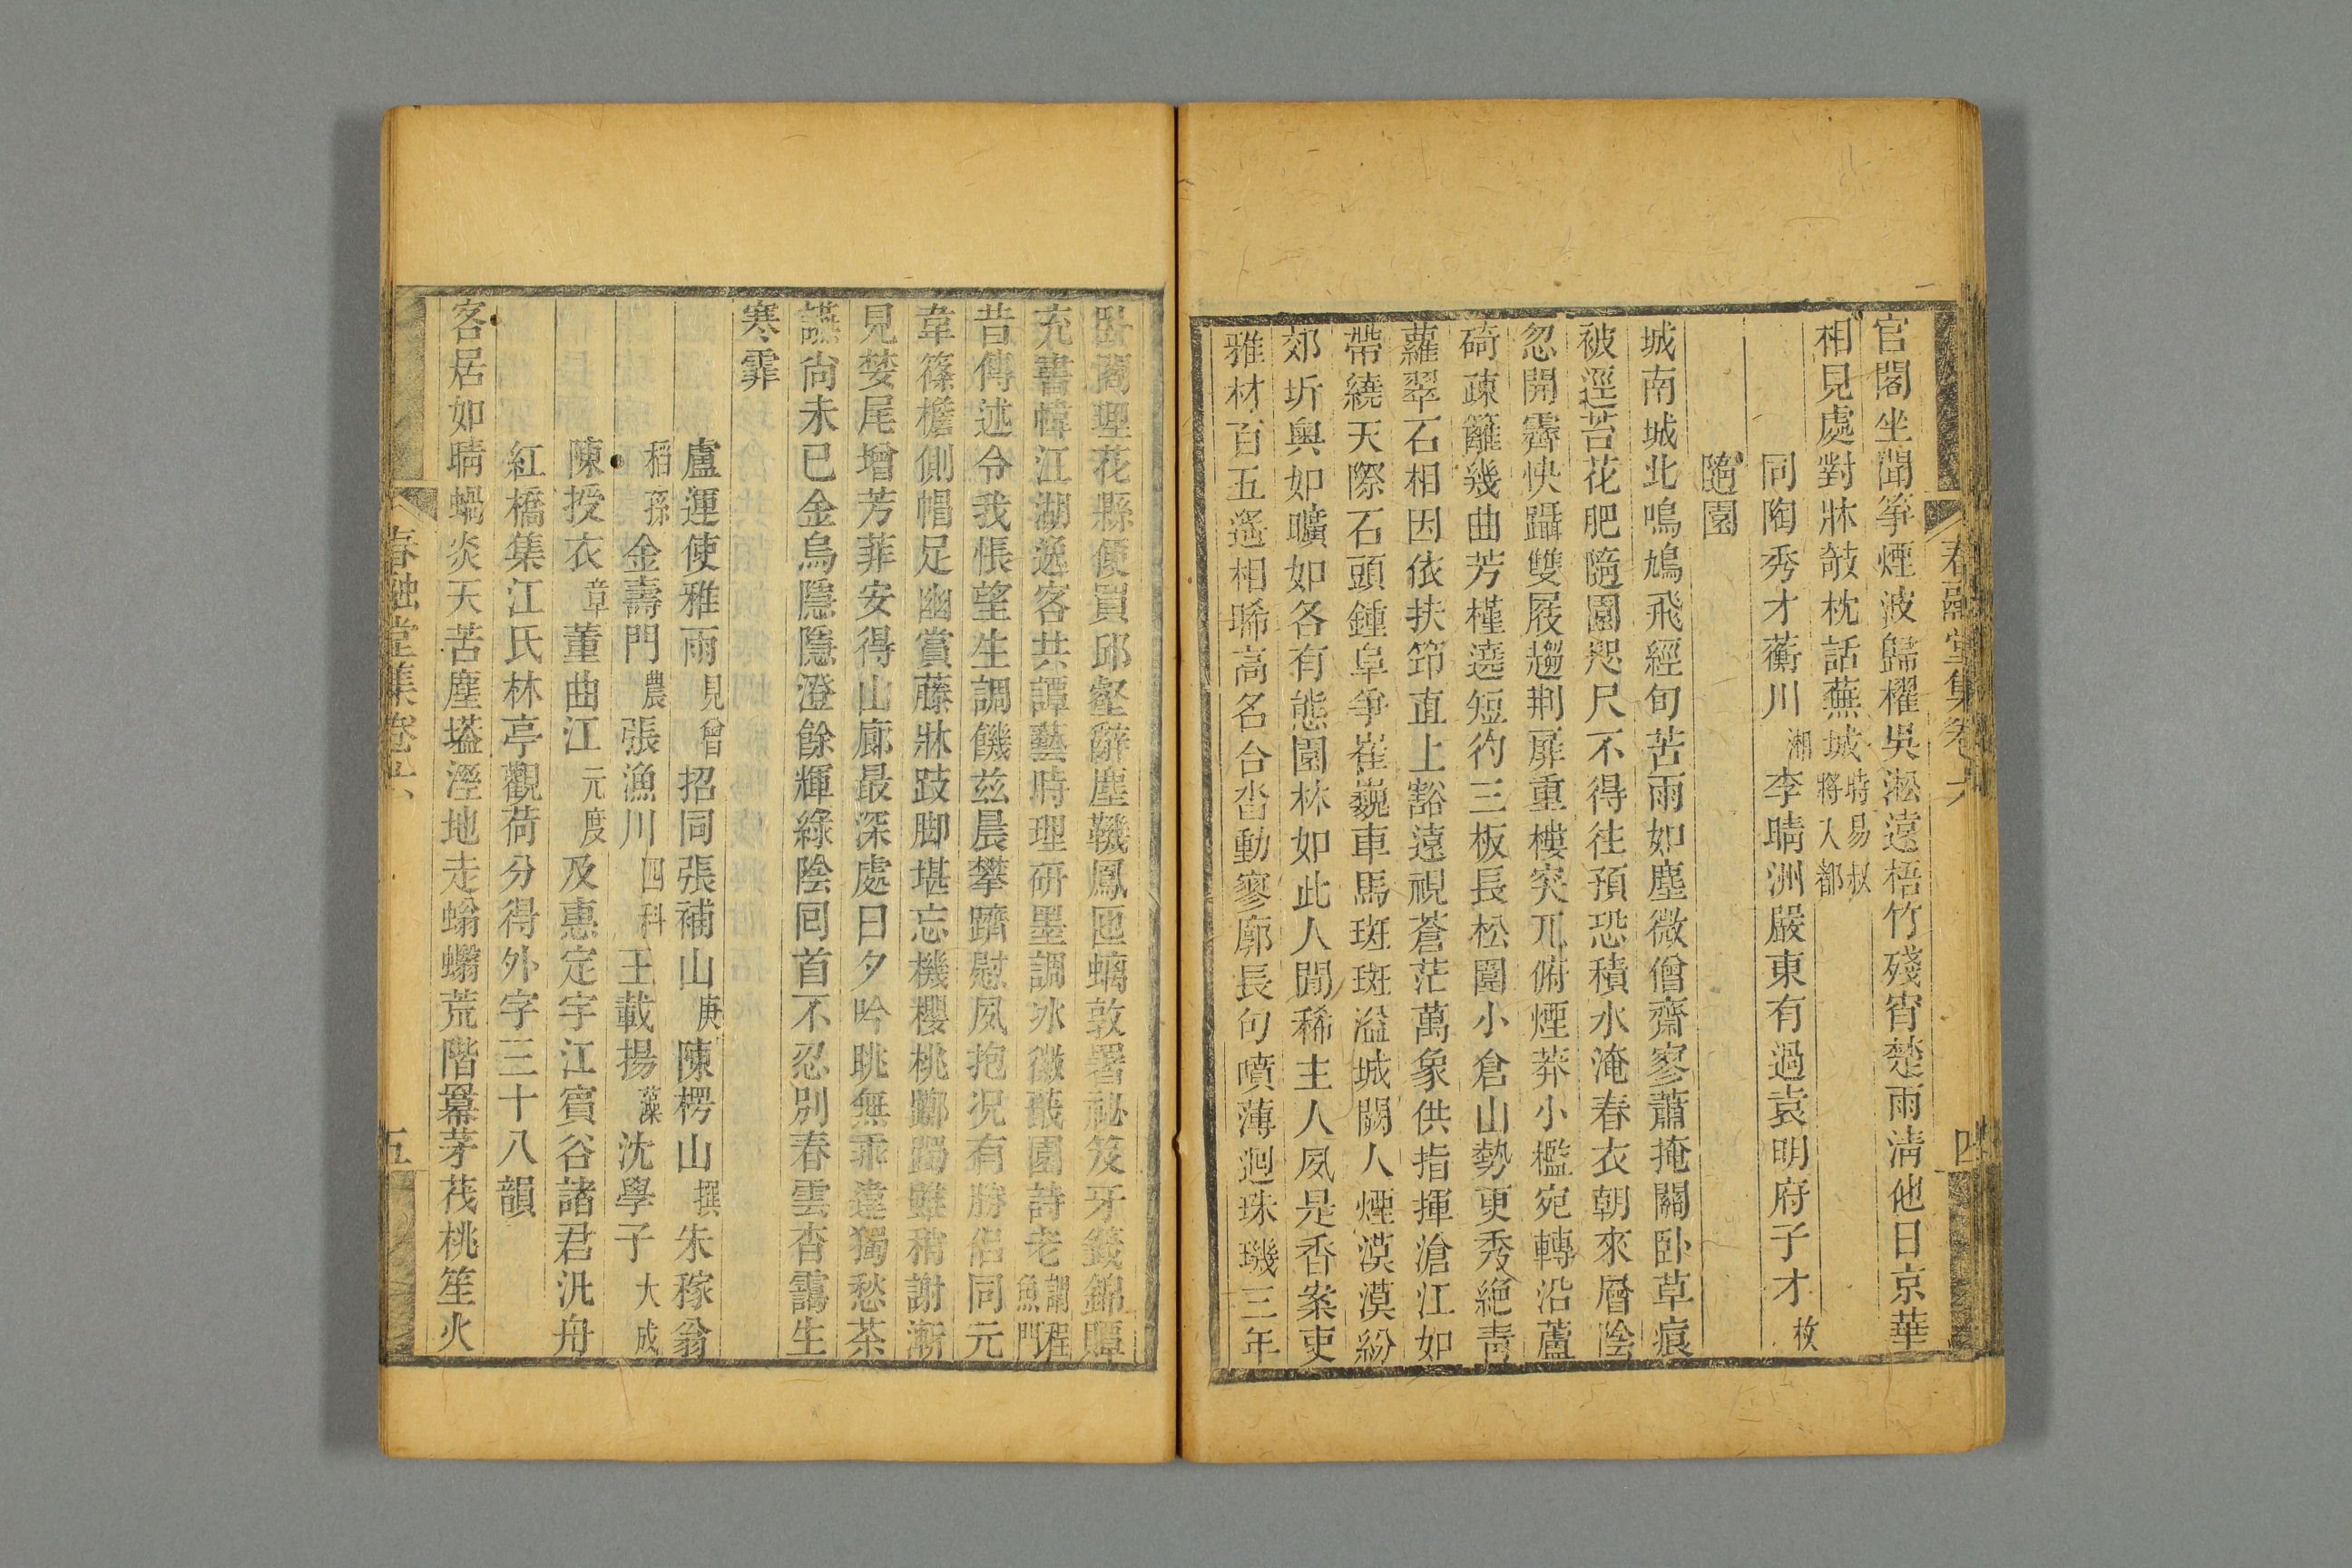 春融堂集卷六
四
官閣坐聞箏煙波歸櫂吳淞遠梧竹殘宵楚雨淸他日京華
相見處對牀攲枕話蕪城時易叔將入都
同陶秀才蘅川湘李晴洲嚴東有過袁明府子才枚
隨園
城南城北鳴鳩飛經旬苦雨如塵微僧齋寥蕭掩關卧草痕
被逕苔花肥隨園咫尺不得往預恐積水淹春衣朝來層陰
忽開霽快躡雙屐趨荆扉重樓突兀俯煙莽小檻宛轉沿蘆
碕疎籬幾曲芳槿遶短彴三板長松圍小倉山勢更秀絕靑
蘿翠石相因依扶筇直上豁遠視蒼茫萬象供指揮滄江如
帶繞天際石頭鍾阜爭崔巍車馬斑斑溢城闕人煙漠漠紛
郊圻奥如曠如各有態園林如此人間稀主人夙是香案吏
雅材百五遙相晞高名合沓動寥廓長句噴薄迴珠璣三年
卧閣理花縣便買邱壑辭塵鞿鳳匜螭敦署祕笈牙籤錦贉
充書幃江湖逸客共譚藝時理硏墨調冰徽蕺園詩老謂程魚門
昔傳述令我悵望生調饑兹晨攀躋慰夙抱况有勝侶同元
韋篠檐側帽足幽賞藤牀跂脚堪忘機櫻桃躑躅雖稍謝漸
見婪尾增芳菲安得山廊最深處日夕吟眺無乖違獨愁茶
讌尙未已金烏隱隱澄餘輝綠陰回首不忍別春雲杳靄生
寒霏
盧運使雅雨見曾招同張補山庚陳楞山撰朱稼翁
稻孫金壽門農張漁川四科王載揚藻沈學子大成
陳授衣章董曲江元度及惠定宇江賓谷諸君汎舟
紅橋集江氏林亭觀荷分得外字三十八韻
客居如晴蝸炎天苦塵壒溼地走螉𧓉荒階羃茅茷桃笙火
春融堂集卷六
五